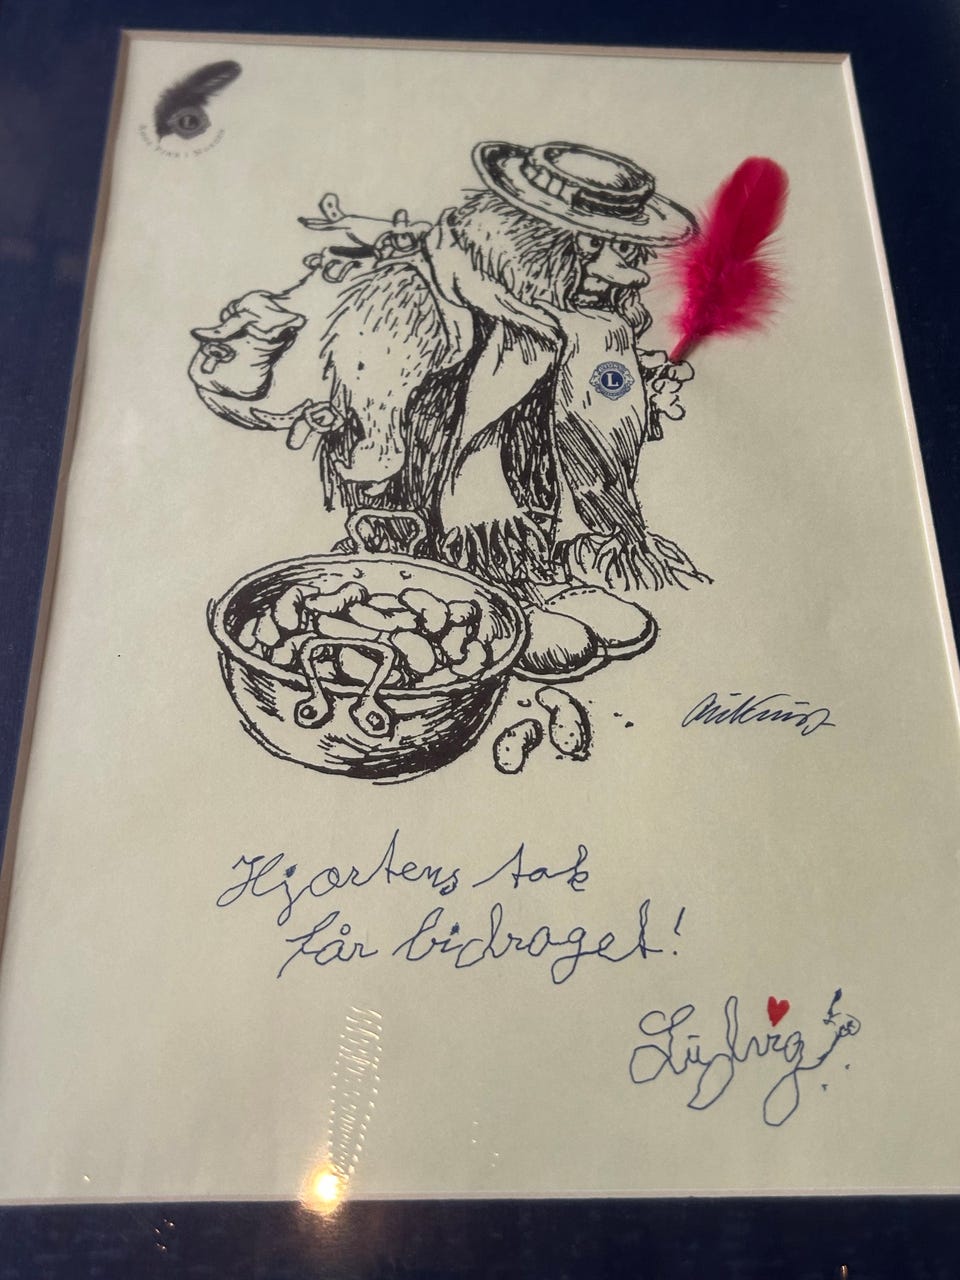 L
L
Hjortens tak
får bidraget!
Ludvig